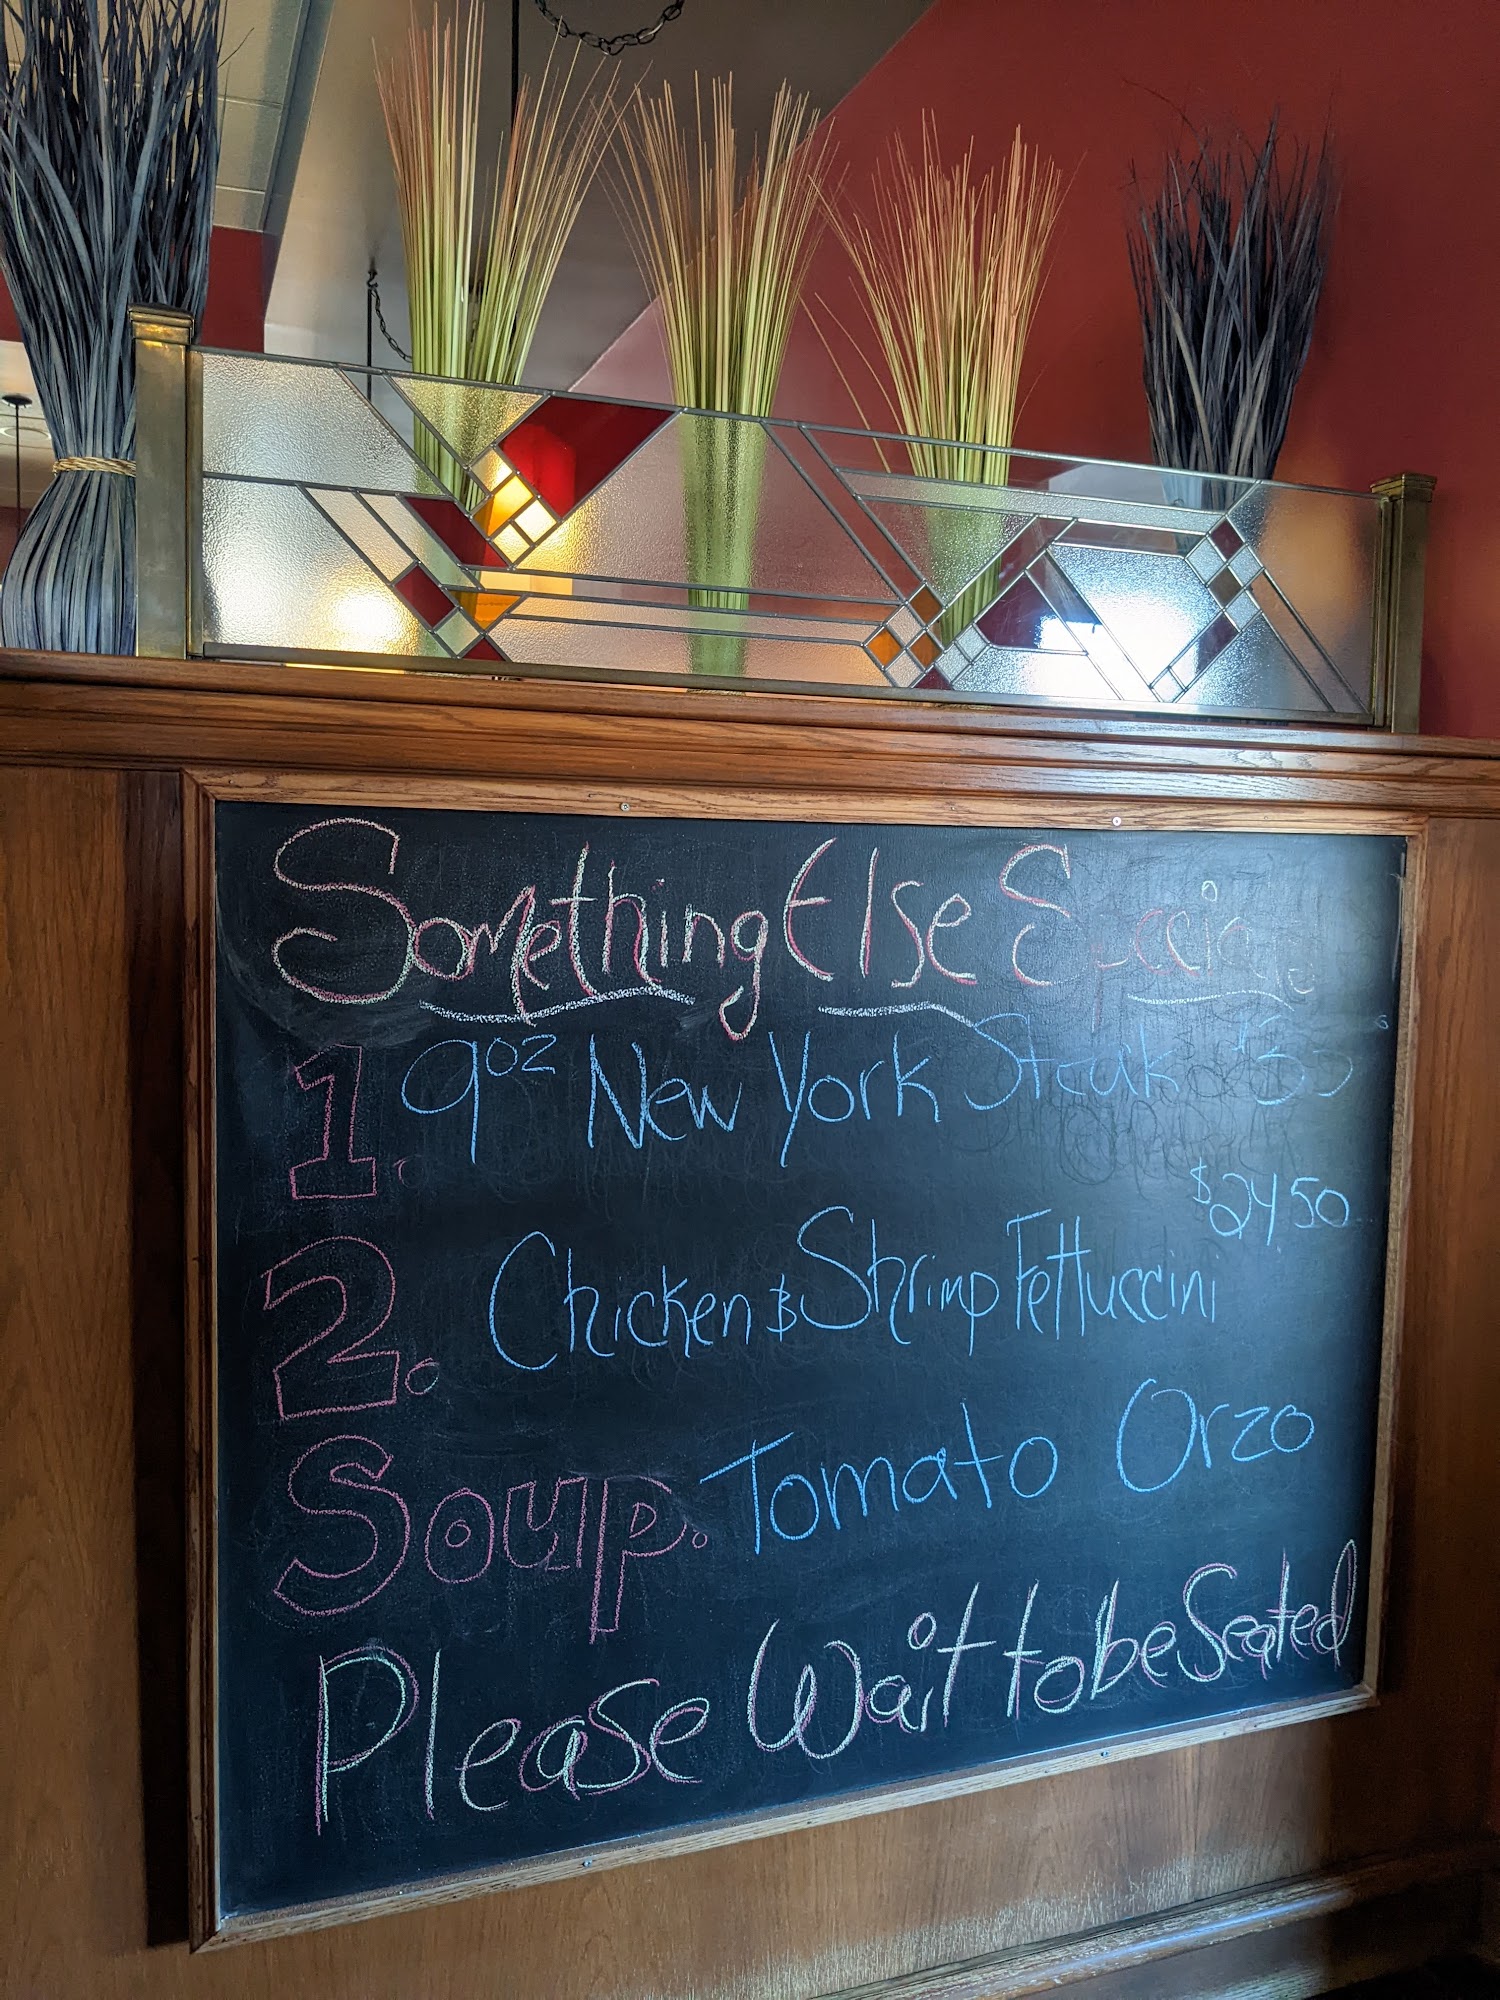 Something Else Special
1. 9oz New York Steak
$24.50
2. Chicken & Shrimp Fettuccini
Soup. Tomato Orzo
Please Wait to be Seated